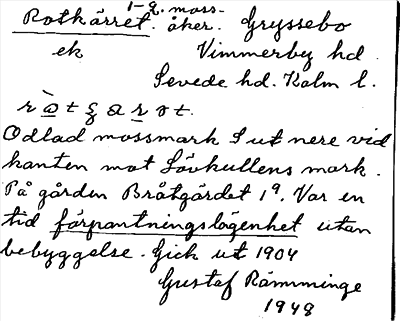 Rotkärret. 1-2. moss-
åker. Gryssebo
ek Vimmerby hd.
Sevede hd. Kalm l.
Odlad mossmark S ut nere vid
kanten mot Lövkullens mark.
På gården Bråtgärdet 1⁹. Var en
tid förpantningslägenhet utan
bebyggelse. Gick ut 1904
Gustaf Rämminge
1948